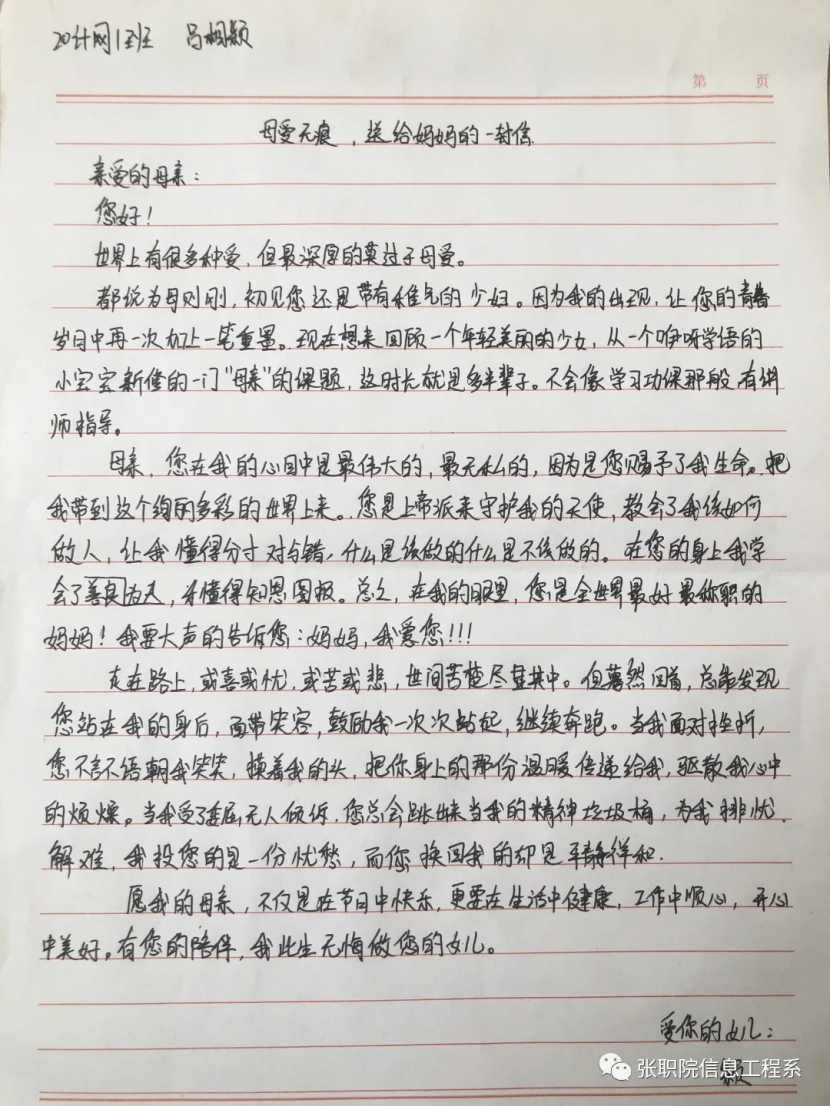 20计网1班 吕相颖
第 页
母爱无痕，送给妈妈的一封信
亲爱的母亲：
您好！
世界上有很多种爱，但最深厚的莫过于母爱。
都说为母则刚，初见您还是带有稚气的少妇。因为我的出现，让您的青春
岁月中再一次加上一笔重墨。现在想来回顾一个年轻美丽的少女，从一个咿呀学语的
小宝宝新修的一门“母亲”的课题，这时长就是多半辈子。不会像学习功课那般有讲
师指导。
母亲，您在我的心目中是最伟大的，最无私的，因为是您赐予了我生命。把
我带到这个绚丽多彩的世界上来。您是上帝派来守护我的天使，教会了我该如何
做人，让我懂得分寸对与错，什么是该做的什么是不该做的。在您的身上我学
会了善良为人，懂得知恩图报。总之，在我的眼里，您是全世界最好最称职的
妈妈！我要大声的告诉您：妈妈，我爱您！！！
走在路上，或喜或忧，或苦或悲，世间苦楚尽显其中。但蓦然回首，总能发现
您站在我的身后，面带笑容，鼓励我一次次站起，继续奔跑。当我面对挫折，
您不言不语朝我笑笑，摸着我的头，把你身上的那份温暖传递给我，驱散我心中
的烦燥。当我受了委屈无人倾诉，您总会跳出来当我的精神垃圾桶，为我排忧
解难，我投您的是一份忧愁，而您换回我的却是平静祥和.
愿我的母亲，不仅是在节日中快乐，更要在生活中健康，工作中顺心，开心
中美好。有您的陪伴，我此生无悔做您的女儿。
爱你的女儿：
颖
张职院信息工程系